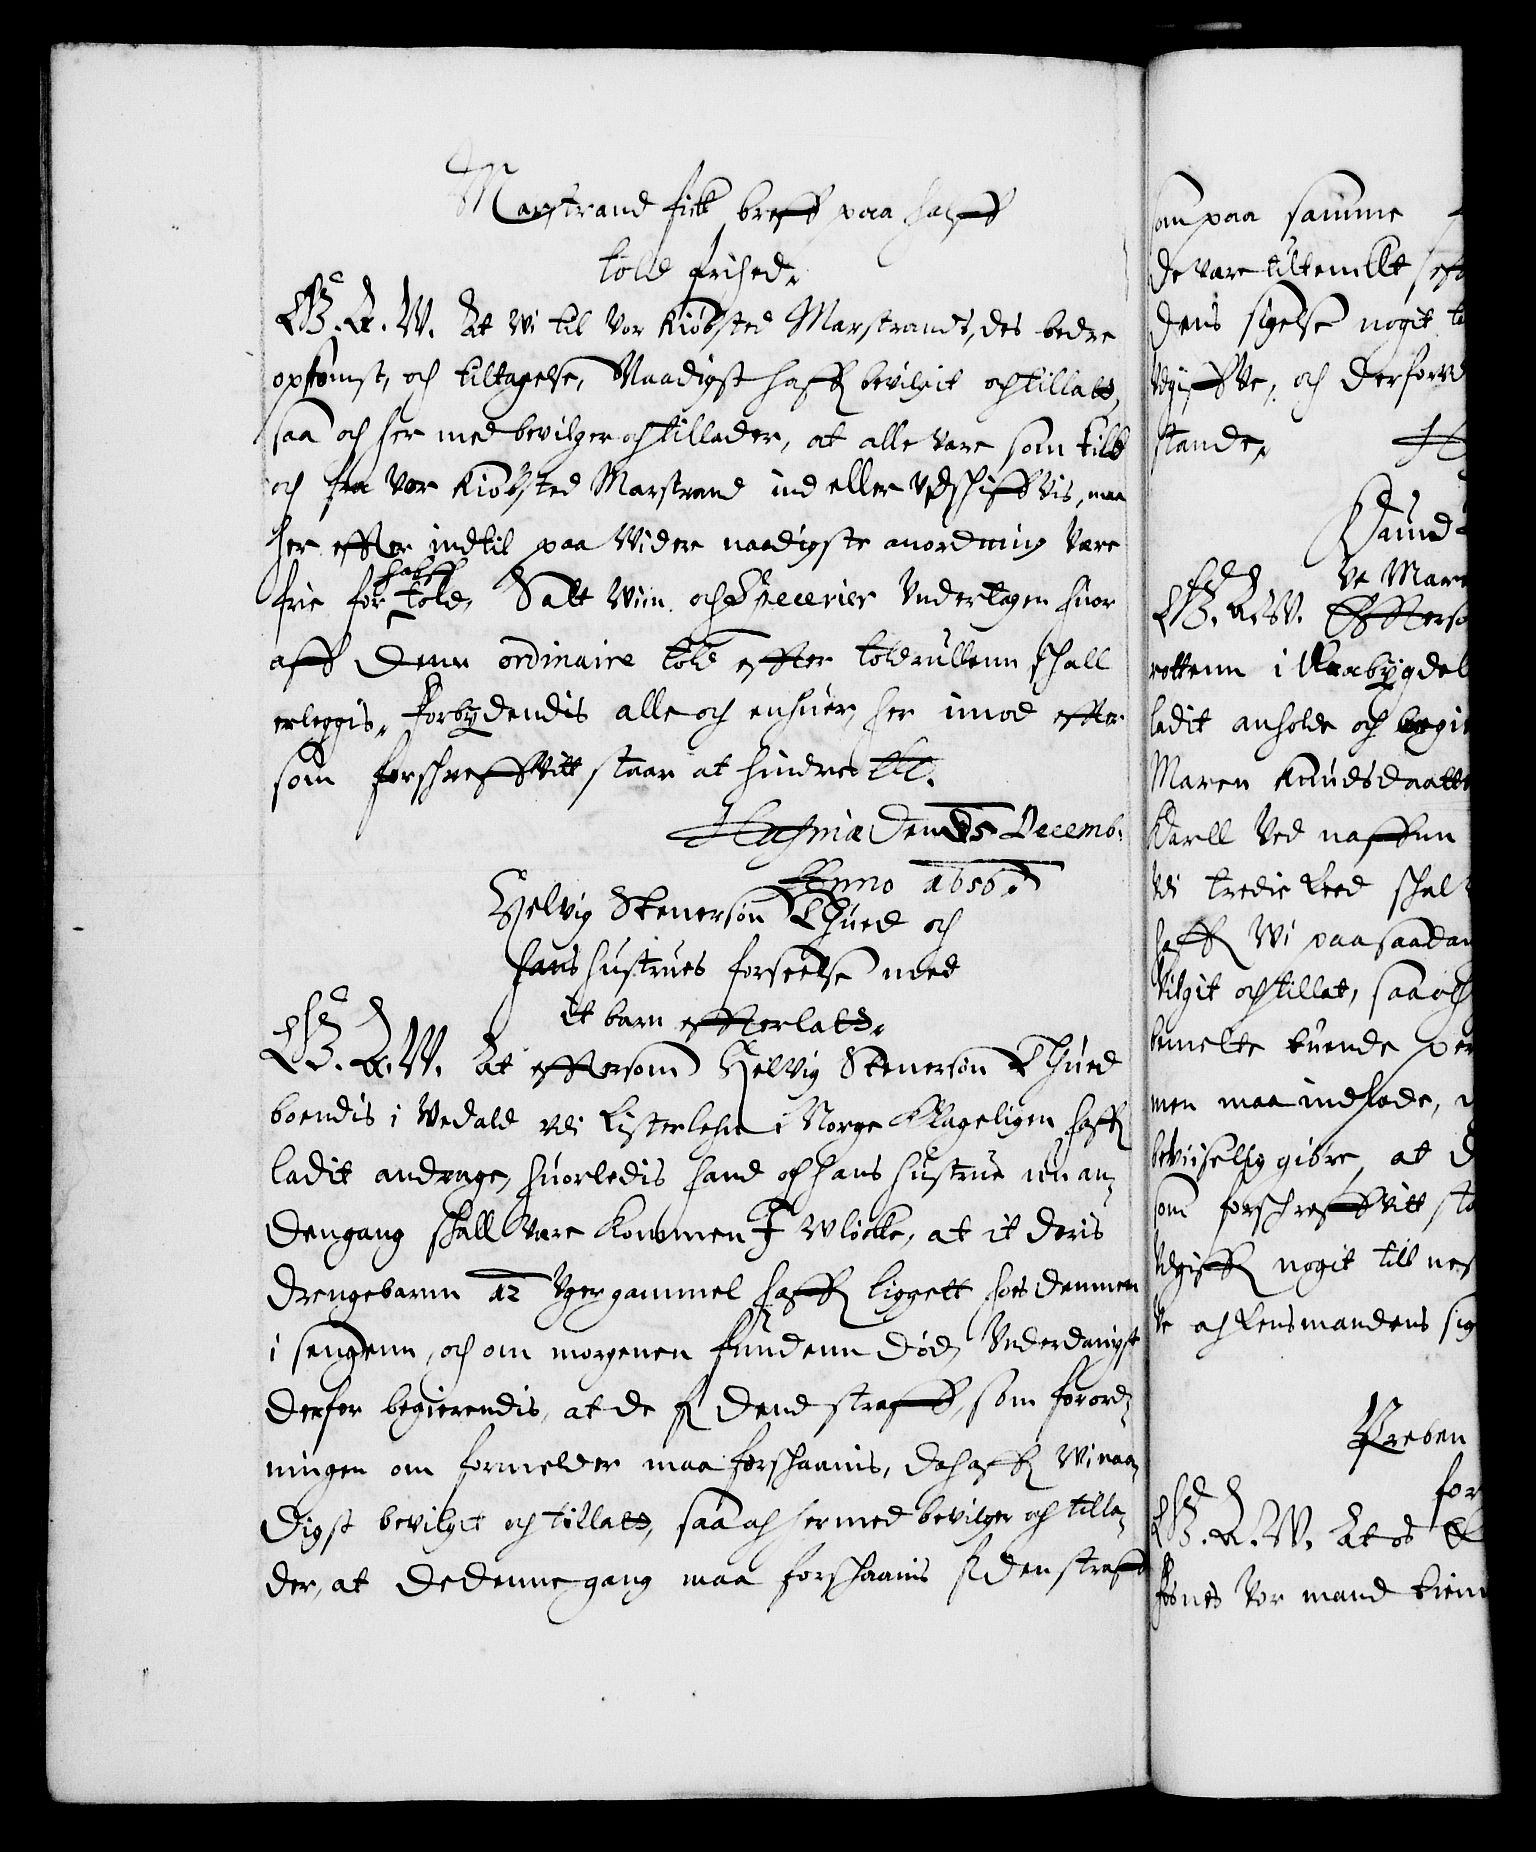 Marstrand fick breff paa halff
told frihed.
G. A. W. At wi til vor kiöbsted Marstrands, des bedre
opkomst, och tiltagelse, Naadigst haffr bevilgit och tillatt,
saa och her med bevilger och tillader, at alle vare som till
och fra vor kiöbsted Marstrand ind eller vdschiffvis, maa
her effter indtil paa videre naadigste anordning være
frie for halff told, Salt Wiin och Specerier Vndertagen huor
aff denn ordinaire told effter toldrullenn schall
erleggis, Forbydendis alle och enhuer, her imod effter
som forschreffvitt staar at hindre etc.
Hafniæ den 15 Decemb.
Anno 1656.
Helvig Stenersön Thued och
hans hustrues forseelse med
it barn effterlatt.
G. A. W. At effttersom Helvig Stenersön Thued
boendis i Vedald vdi Listerlehn i Norge Klageligen haffr
ladit andrage, huorledis hand och hans hustrue nu an-
dengang schall være kommen I vlöcke, at it deris
drengebarnn 12 Vger gammel haffr liggett hos dennem
i sengenn, och om morgenen fundenn död, Vnderdanigst
derfor begierendis, at de fr dend straff, som forord-
ningen om formelder maa forschaanis, da haffr Wi naa-
digst bevilgit och tillatt, saa och hermed bevilger och tilla-
der, at de denne gang maa forschaanis fr den straff
som paa samme
de vare tiltenckt
dens sigelse nogit
vdgiffve, och derforvd
stande,
ve Mare
G. A. W. Effterso
rottenn i Raabygdel
ladit anholde och begie
Maren Knudsdaatt
Karll ved naffnn
vdi tredie Leed schal
haffr Wi paa saadan
vilgit och tillat, saa och
bemelte tuende per
men maa indlade,
beviselig giöre, at d
som forschreffvitt sta
Vdgiffr nogit till nes
ve och Lensmandens sig
Preben
for
G. A. W. At os El
fösnes vor mand tien